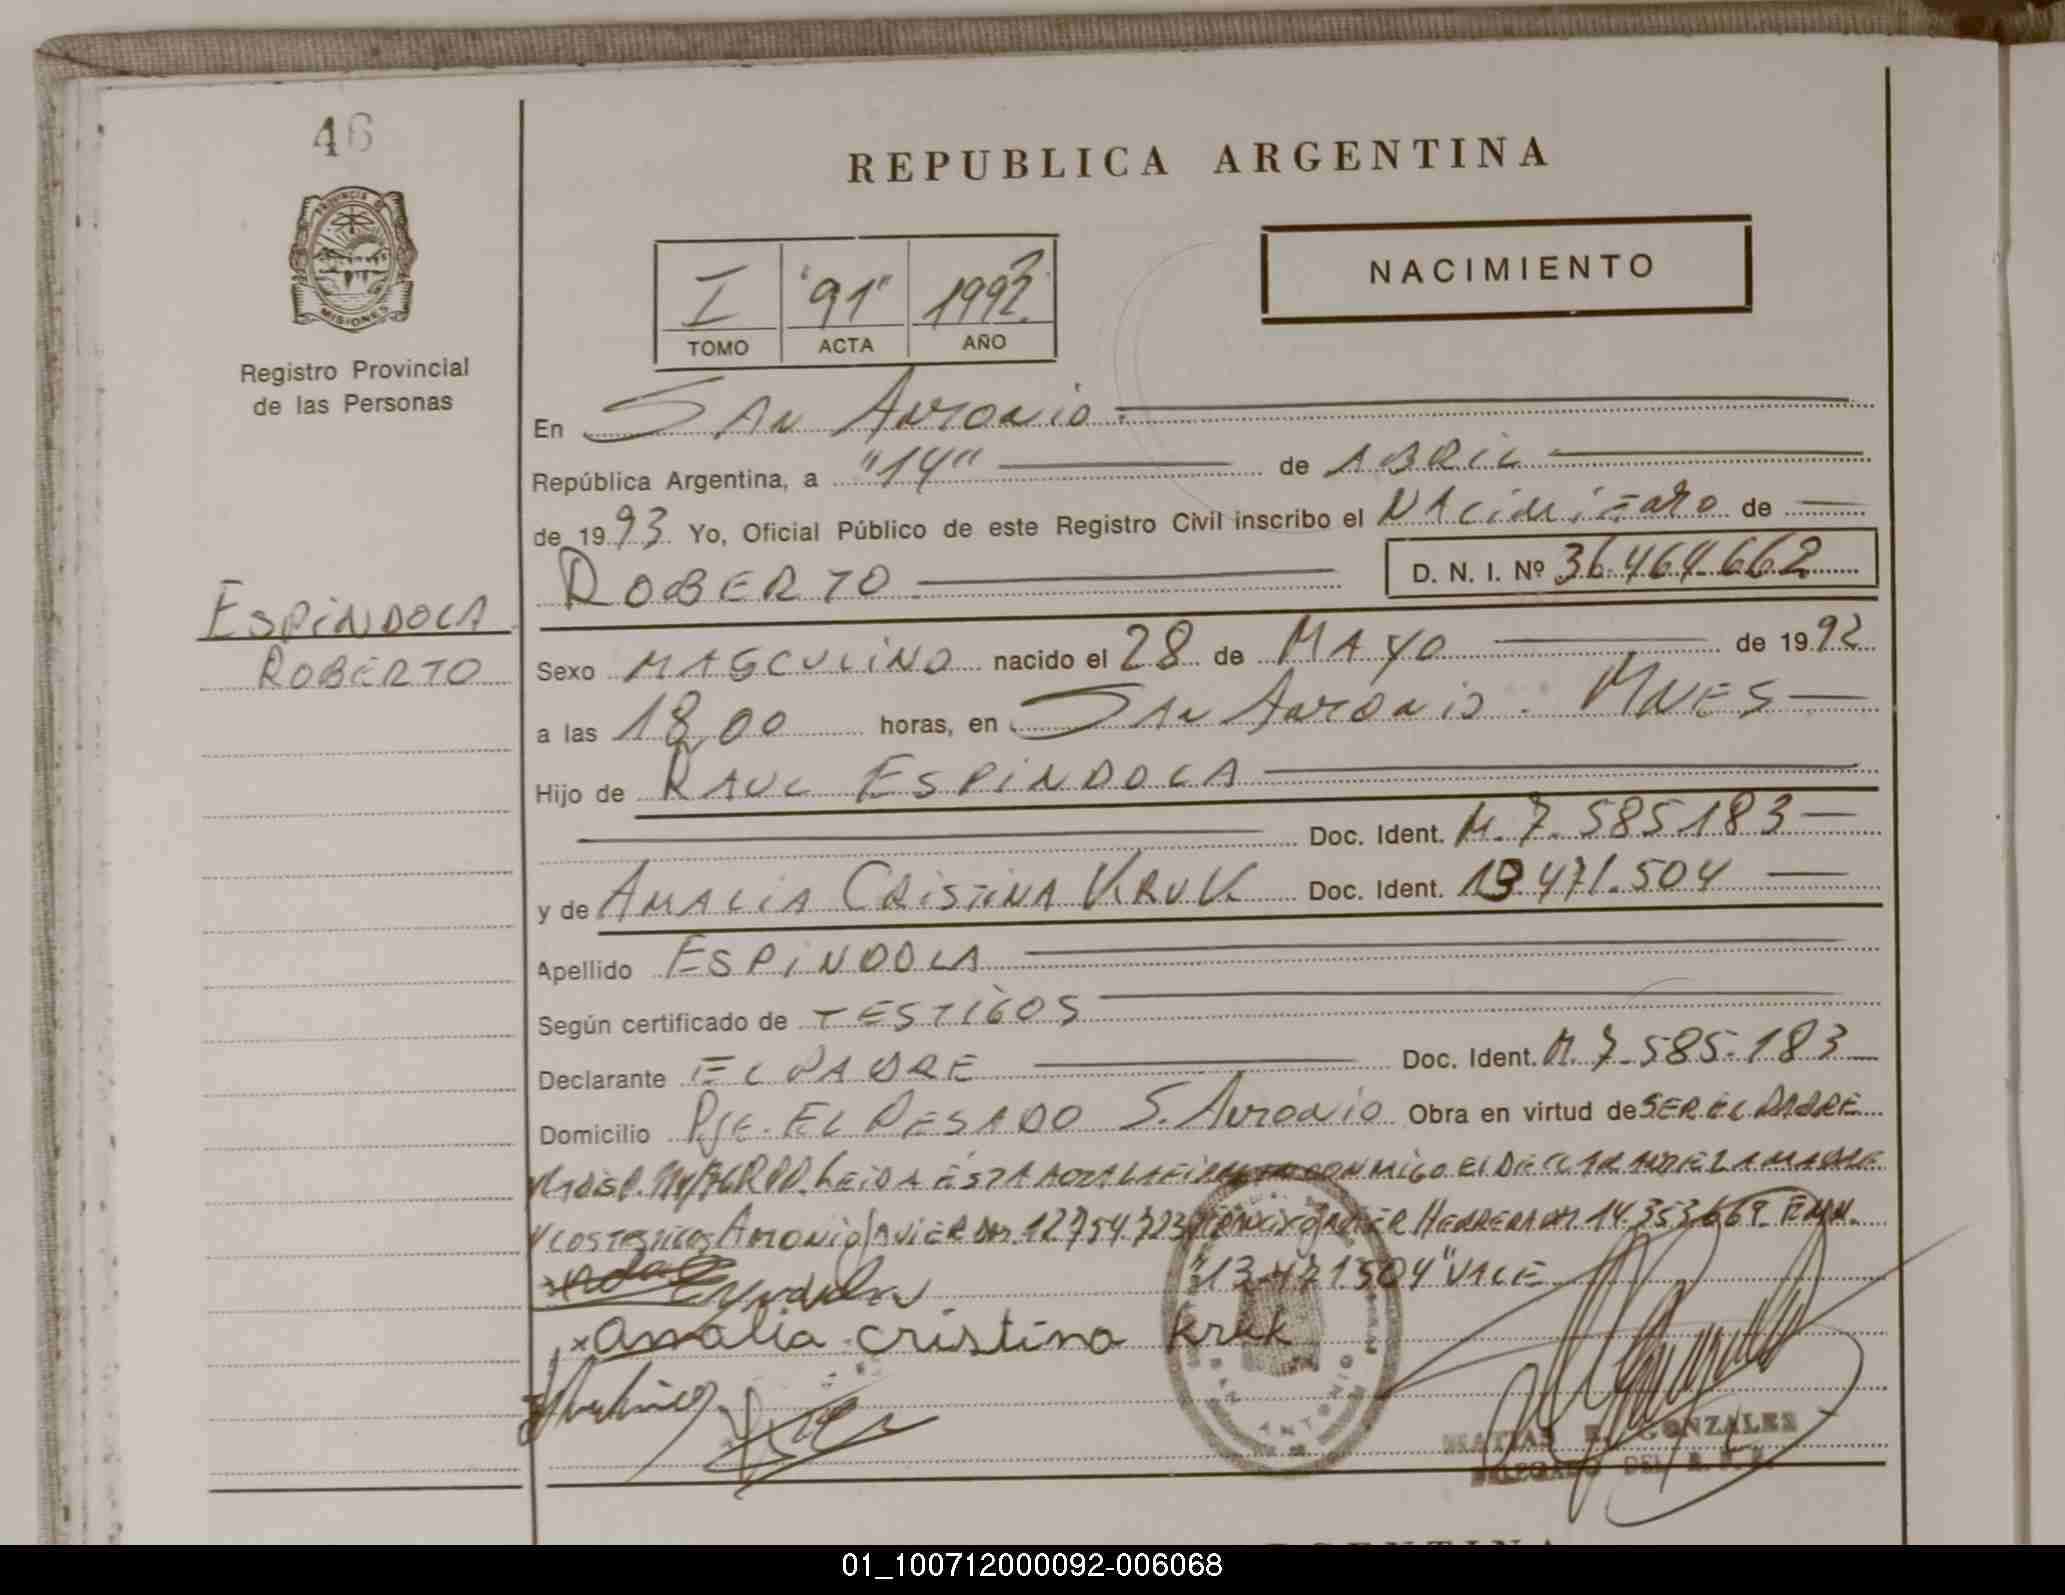 46
REPUBLICA ARGENTINA
PROVINCIA DE
MISIONES
Registro Provincial
de las Personas
NACIMIENTO
I "91" 1992
TOMO ACTA AÑO
En San Antonio
República Argentina, a "14" de ABRIL
de 1993 Yo, Oficial Público de este Registro Civil inscribo el NACIMIENTO de
ROBERTO D. N. I. Nº 36.464.662
ESPINDOLA
ROBERTO
Sexo MASCULINO nacido el 28 de MAYO de 1992
a las 18,00 horas, en San Antonio. MNES
Hijo de RAUL ESPINDOLA
Doc. Ident. M. 7.585.183
y de AMALIA CRISTINA KRUK Doc. Ident. 13.471.504
Apellido ESPINDOLA
Según certificado de TESTIGOS
Declarante EL PADRE Doc. Ident. M. 7.585.183
Domicilio Pje. EL PESADO S. Antonio Obra en virtud de SER EL PADRE
LEIDA ESTA ACTA LA FIRMAN CONMIGO EL DECLARANTE LA MADRE
Y LOS TESTIGOS ANTONIO JAVIER DNI. 12.754.723 JAVIER HERRERA DNI 14.353.669.
"13.471504" VALE
x amalia cristina kruk
SAN ANTONIO
MATIAS E. GONZALEZ
DELEGADO DEL R. P. P.
01_100712000092-006068